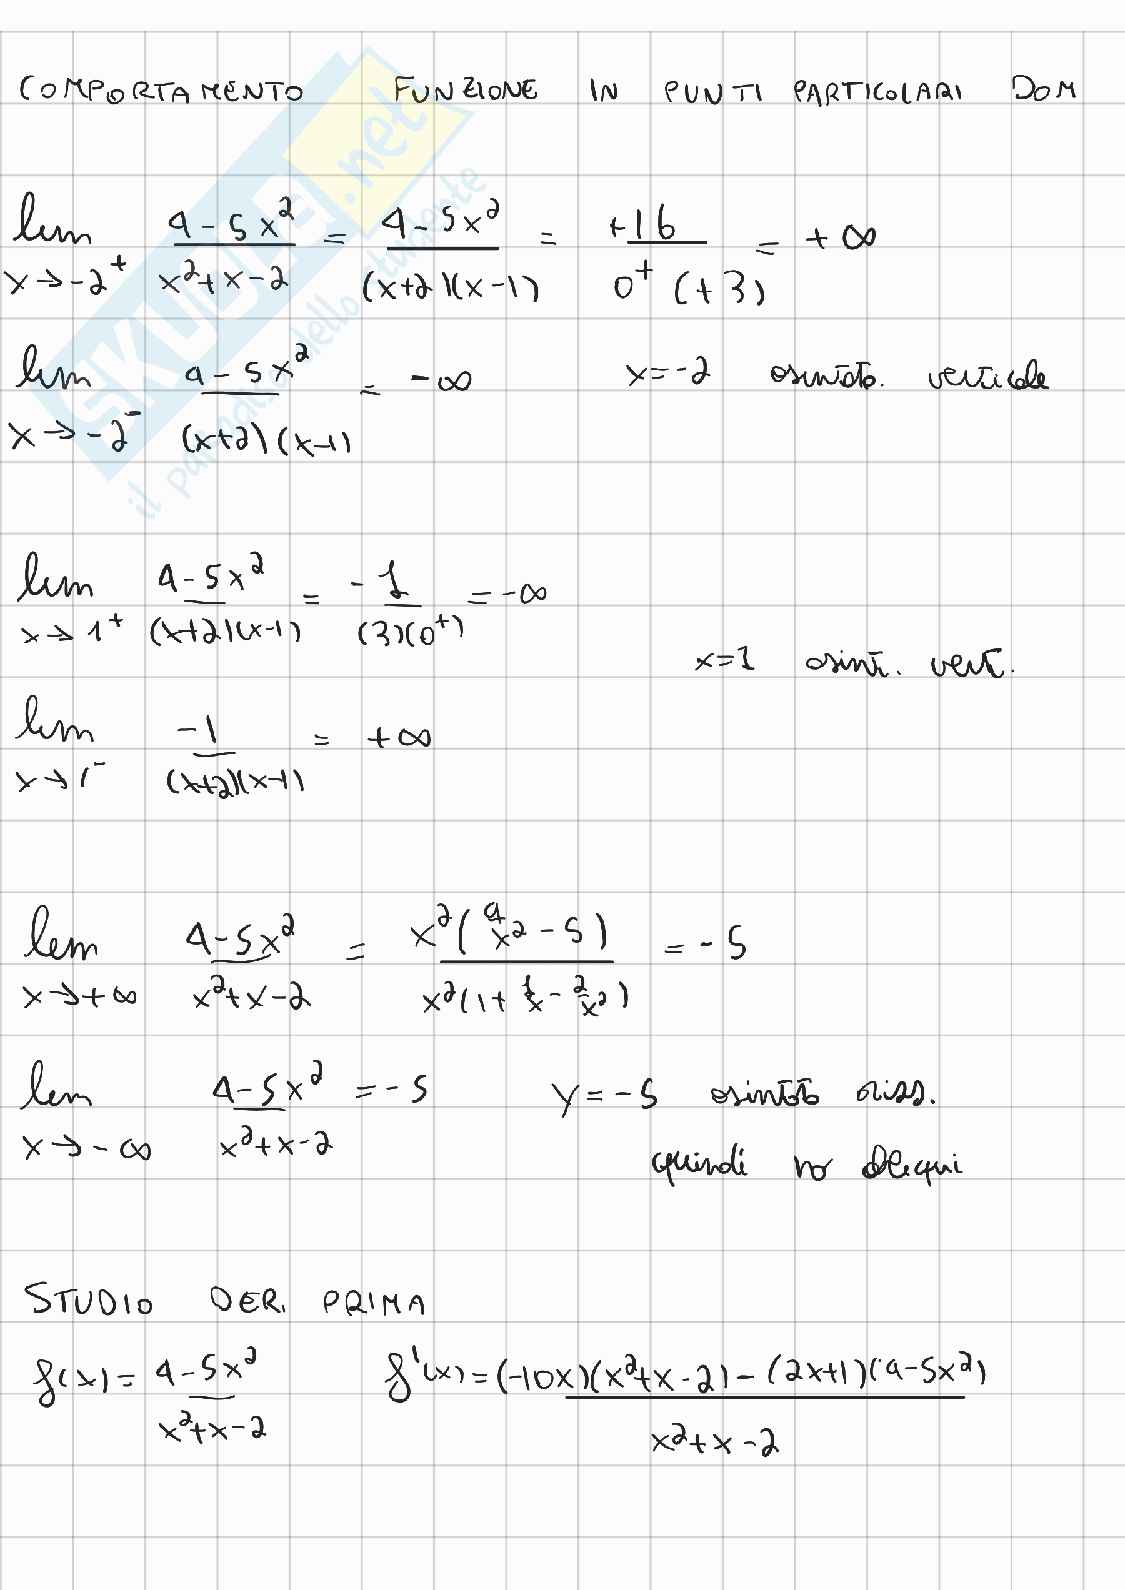 COMPORTAMENTO FUNZIONE IN PUNTI PARTICOLARI DOM
lim x→-2⁺ (4-5x²)/(x²+x-2) = (4-5x²)/((x+2)(x-1)) = +16/(0⁺(+3)) = +∞
lim x→-2⁻ (4-5x²)/((x+2)(x-1)) = -∞ x=-2 asintoto. verticale
lim x→1⁺ (4-5x²)/((x+2)(x-1)) = -1/((3)(0⁺)) = -∞
x=1 asint. vert.
lim x→1⁻ -1/((x+2)(x-1)) = +∞
lim x→+∞ (4-5x²)/(x²+x-2) = x²(4/x²-5)/(x²(1+1/x-2/x²)) = -5
lim x→-∞ (4-5x²)/(x²+x-2) = -5 y=-5 asintoto oriss.
quindi no obliqui
STUDIO DER. PRIMA
f(x) = (4-5x²)/(x²+x-2) f'(x) = ((-10x)(x²+x-2)-(2x+1)(4-5x²))/(x²+x-2)
SKUOLA.net
il paradiso dello studente